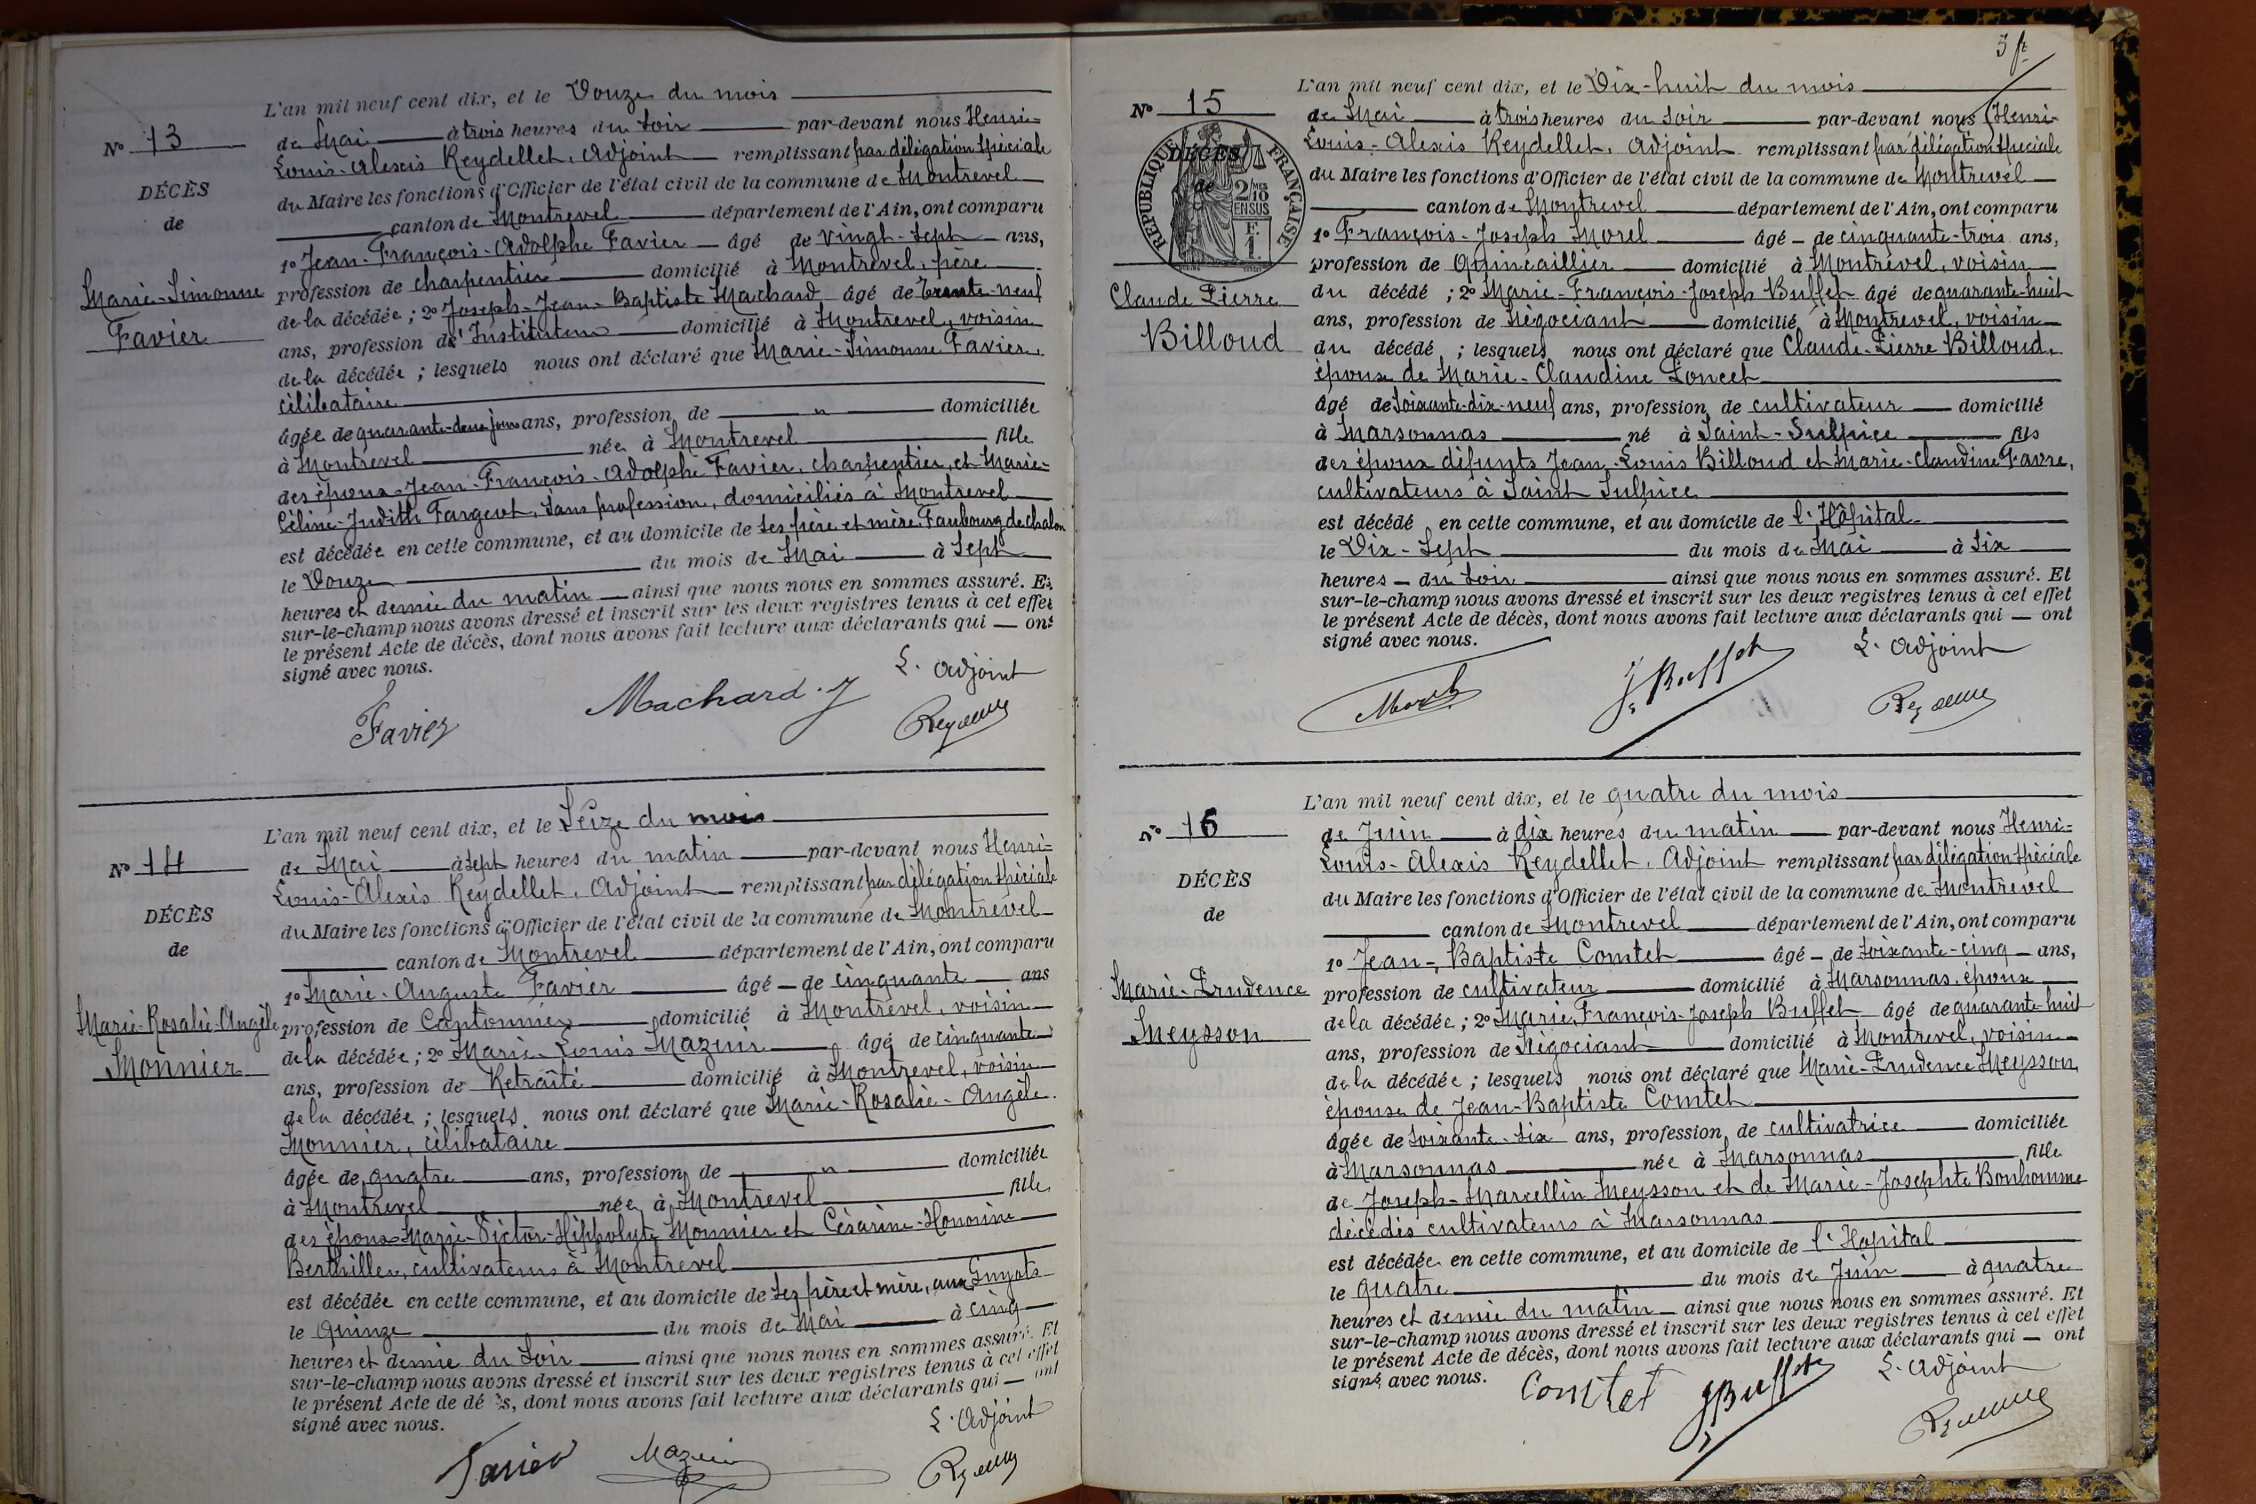 L'an mil neuf cent dix, et le Douze du mois
N° 13
de Mai à trois heures du soir par-devant nous Henri-
Louis-Alexis Reydellet, Adjoint remplissant par délégation spéciale
DÉCÈS
du Maire les fonctions d'Officier de l'état civil de la commune de Montrevel
de
canton de Montrevel département de l'Ain, ont comparu
1° Jean-François-Adolphe Favier âgé de vingt-sept ans,
Marie-Simonne
Favier
profession de charpentier domicilié à Montrevel, père
de la décédée ; 2° Joseph-Jean-Baptiste Machard âgé de trente-neuf
ans, profession d'Instituteur domicilié à Montrevel, voisin
de la décédée ; lesquels nous ont déclaré que Marie-Simonne Favier,
célibataire
âgée de quarante-deux jours ans, profession de " domiciliée
à Montrevel née à Montrevel fille
des époux Jean-François-Adolphe Favier, charpentier, et Marie-
Céline-Judith Fargeot, sans profession, domiciliés à Montrevel
est décédée en cette commune, et au domicile de ses père et mère, Faubourg de Chalon
le Douze du mois de Mai à sept
heures et demie du matin ainsi que nous nous en sommes assuré. Et
sur-le-champ nous avons dressé et inscrit sur les deux registres tenus à cet effet
le présent Acte de décès, dont nous avons fait lecture aux déclarants qui — ont
signé avec nous.
L. Adjoint
Favier
Machard. J
L'an mil neuf cent dix, et le Seize du mois
N° 14
de Mai à sept heures du matin par-devant nous Henri-
Louis-Alexis Reydellet, Adjoint remplissant par délégation spéciale
DÉCÈS
du Maire les fonctions d'Officier de l'état civil de la commune de Montrevel
de
canton de Montrevel département de l'Ain, ont comparu
1° Marie-Auguste Favier âgé — de cinquante ans
Marie-Rosalie-Angèle
Monnier
profession de Cantonnier domicilié à Montrevel, voisin
de la décédée ; 2° Marie-Louis Mazuir âgé de cinquante
ans, profession de Retraité domicilié à Montrevel, voisin
de la décédée ; lesquels nous ont déclaré que Marie-Rosalie-Angèle
Monnier, célibataire
âgée de quatre ans, profession de " domiciliée
à Montrevel née à Montrevel fille
des époux Marie-Victor-Hippolyte Monnier et Césarine-Honorine
Berthillier, cultivateurs à Montrevel
est décédée en cette commune, et au domicile de ses père et mère, aux Guyots
le Quinze du mois de Mai à cinq
heures et demie du soir ainsi que nous nous en sommes assuré. Et
sur-le-champ nous avons dressé et inscrit sur les deux registres tenus à cet effet
le présent Acte de décès, dont nous avons fait lecture aux déclarants qui — ont
signé avec nous.
L. Adjoint
Favier
Mazuir
L'an mil neuf cent dix, et le Dix-huit du mois
N° 15
de Mai à trois heures du soir par-devant nous Henri-
Louis-Alexis Reydellet, Adjoint remplissant par délégation spéciale
DÉCÈS
de
RÉPUBLIQUE FRANÇAISE
2/10
EN SUS
du Maire les fonctions d'Officier de l'état civil de la commune de Montrevel
canton de Montrevel département de l'Ain, ont comparu
1° François-Joseph Morel âgé — de cinquante-trois ans,
profession de Quincaillier domicilié à Montrevel, voisin
Claude Pierre
Billoud
du décédé ; 2° Marie-François-Joseph Buffet âgé de quarante-huit
ans, profession de Négociant domicilié à Montrevel, voisin
du décédé ; lesquels nous ont déclaré que Claude-Pierre Billoud,
époux de Marie-Claudine Poncet
âgé de soixante-dix-neuf ans, profession de cultivateur domicilié
à Marsonnas né à Saint-Sulpice fils
des époux défunts Jean-Louis Billoud et Marie-Claudine Favre,
cultivateurs à Saint Sulpice
est décédé en cette commune, et au domicile de l'Hôpital
le Dix-sept du mois de Mai à six
heures — du soir ainsi que nous nous en sommes assuré. Et
sur-le-champ nous avons dressé et inscrit sur les deux registres tenus à cet effet
le présent Acte de décès, dont nous avons fait lecture aux déclarants qui — ont
signé avec nous.
L. Adjoint
Morel
J Buffet
L'an mil neuf cent dix, et le quatre du mois
N° 16
de Juin à dix heures du matin par-devant nous Henri-
Louis-Alexis Reydellet, Adjoint remplissant par délégation spéciale
DÉCÈS
du Maire les fonctions d'Officier de l'état civil de la commune de Montrevel
de
canton de Montrevel département de l'Ain, ont comparu
1° Jean-Baptiste Comtet âgé — de soixante-cinq ans,
Marie-Prudence
Meysson
profession de cultivateur domicilié à Marsonnas, époux
de la décédée ; 2° Marie-François-Joseph Buffet âgé de quarante-huit
ans, profession de Négociant domicilié à Montrevel, voisin
de la décédée ; lesquels nous ont déclaré que Marie-Prudence Meysson
épouse de Jean-Baptiste Comtet
âgée de soixante-six ans, profession de cultivatrice domiciliée
à Marsonnas née à Marsonnas fille
de Joseph-Marcellin Meysson et de Marie-Josephte Bonhomme
décédés cultivateurs à Marsonnas
est décédée en cette commune, et au domicile de l'Hopital
le quatre du mois de Juin à quatre
heures et demie du matin ainsi que nous nous en sommes assuré. Et
sur-le-champ nous avons dressé et inscrit sur les deux registres tenus à cet effet
le présent Acte de décès, dont nous avons fait lecture aux déclarants qui — ont
signé avec nous.
L. Adjoint
Comtet
J Buffet